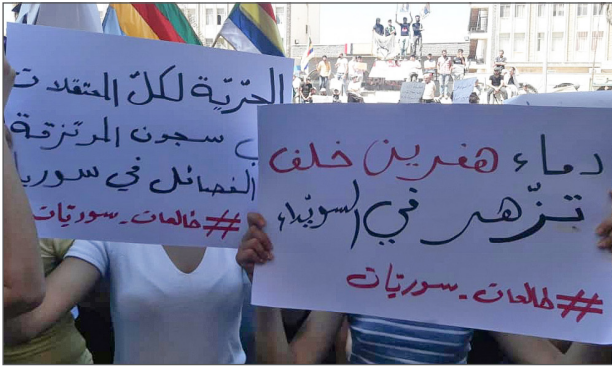 الحرّيّة لكلّ المعتقلات
سجون المرتزقة
الفصائل في سوريا
#طالعات_سوريّات
دماء هفرين خلف
تزّهر في السويداء
#طالعات_سوريّات